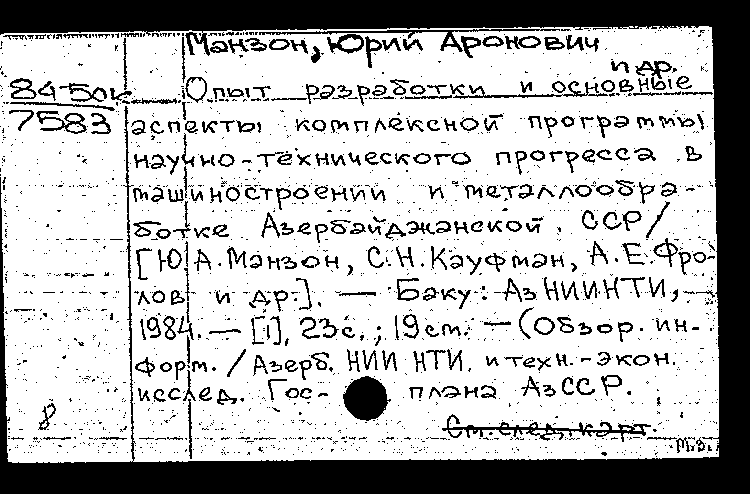 Манзон, Юрий Аронович
и др.
84-50к Опыт разработки и основные
7583 аспекты комплексной программы
научно-технического прогресса в
машиностроении и металлообра-
ботке Азербайджанской ССР /
[Ю.А.Манзон, С.Н.Кауфман, А.Е.Фро-
лов и др.]. — Баку: АзНИИНТИ,
1984. — [1], 23с.; 19см. — (Обзор. ин-
форм. / Азерб. НИИ НТИ. и техн.-экон.
исслед. Гос- плана АзССР.
8
См. след. карт.